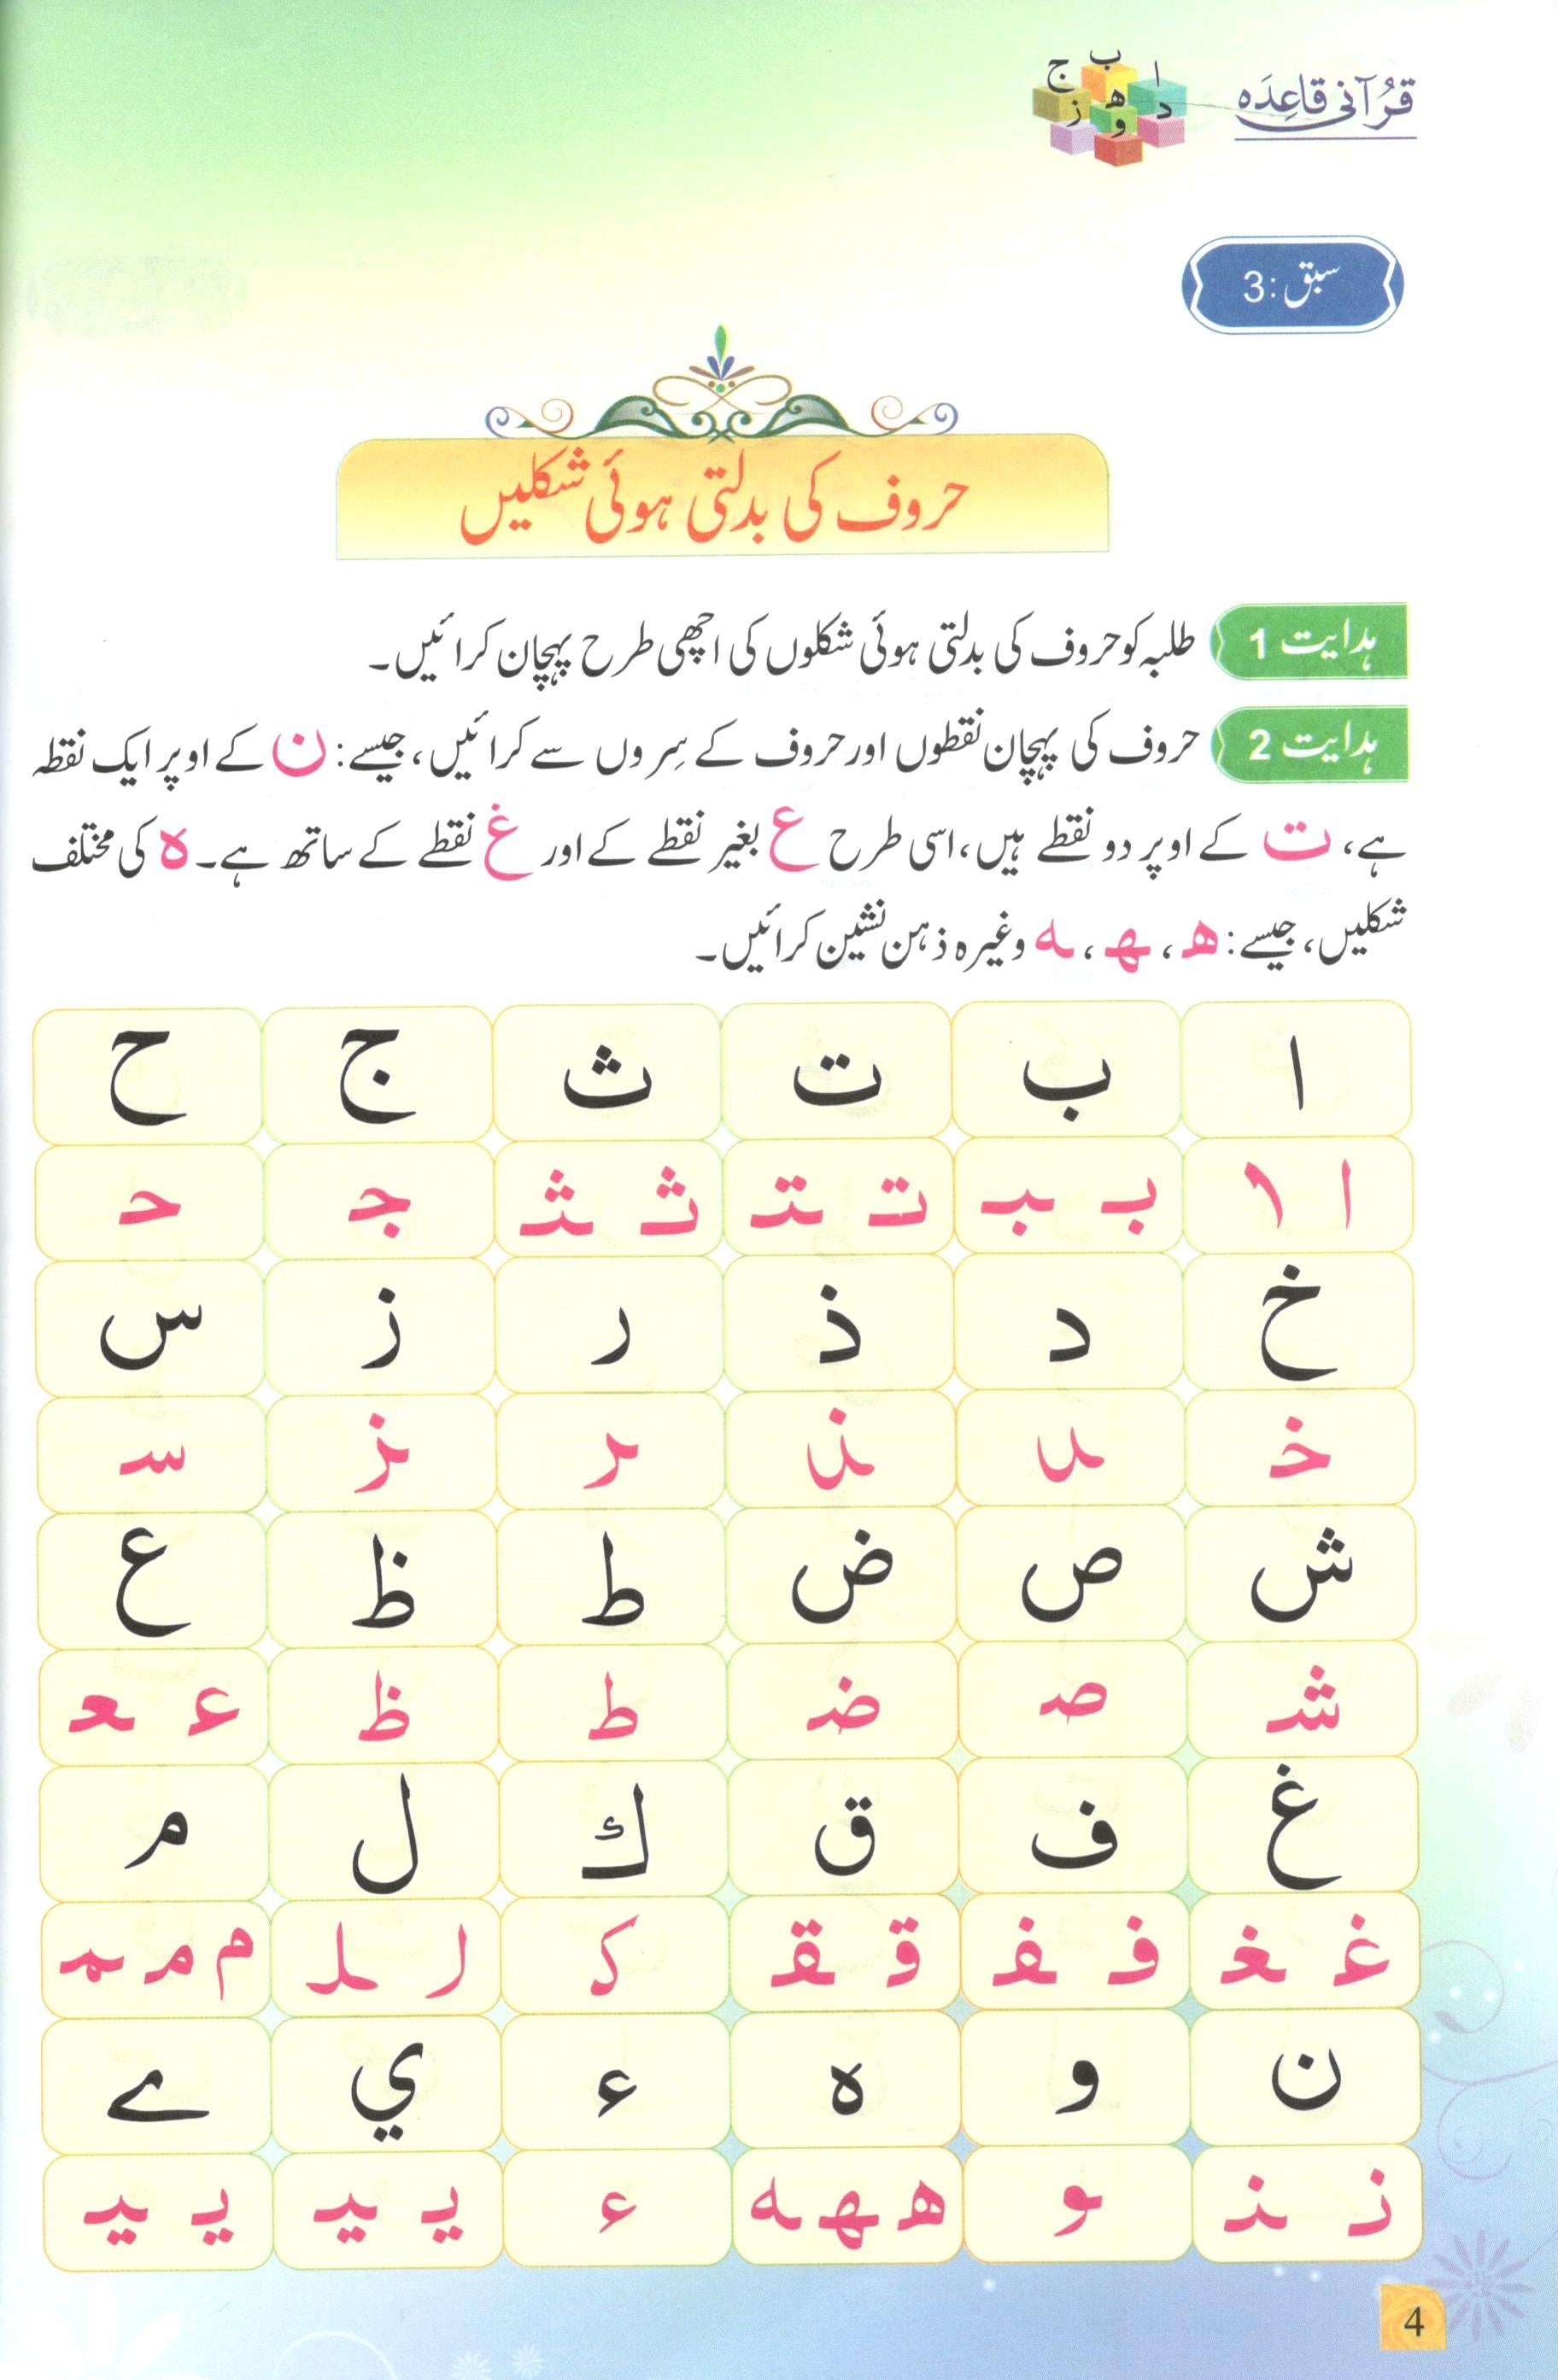 قُرآنی قاعِدَہ
ا ب ج
د ھ ز
و
سبق:3
حروف کی بدلتی ہوئی شکلیں
ہدایت 1 طلبہ کو حروف کی بدلتی ہوئی شکلوں کی اچھی طرح پہچان کرائیں۔
ہدایت 2 حروف کی پہچان نقطوں اور حروف کے سِروں سے کرائیں، جیسے: ن کے اوپر ایک نقطہ
ہے، ت کے اوپر دو نقطے ہیں، اسی طرح ع بغیر نقطے کے اور غ نقطے کے ساتھ ہے۔ ہ کی مختلف
شکلیں، جیسے: ھ، ـہـ، ـہ وغیرہ ذہن نشین کرائیں۔
ا ب ت ث ج ح
ا ـا بـ ـبـ تـ ـتـ ثـ ـثـ جـ حـ
خ د ذ ر ز س
خـ ـد ـذ ـر ـز سـ
ش ص ض ط ظ ع
شـ صـ ضـ ط ظ عـ ـعـ
غ ف ق ك ل م
غـ ـغـ فـ ـفـ قـ ـقـ کـ لـ ـلـ م مـ ـمـ
ن و ہ ء ي ے
نـ ـنـ ـو ھ ـہـ ـہ ء یـ ـیـ یـ ـیـ
4